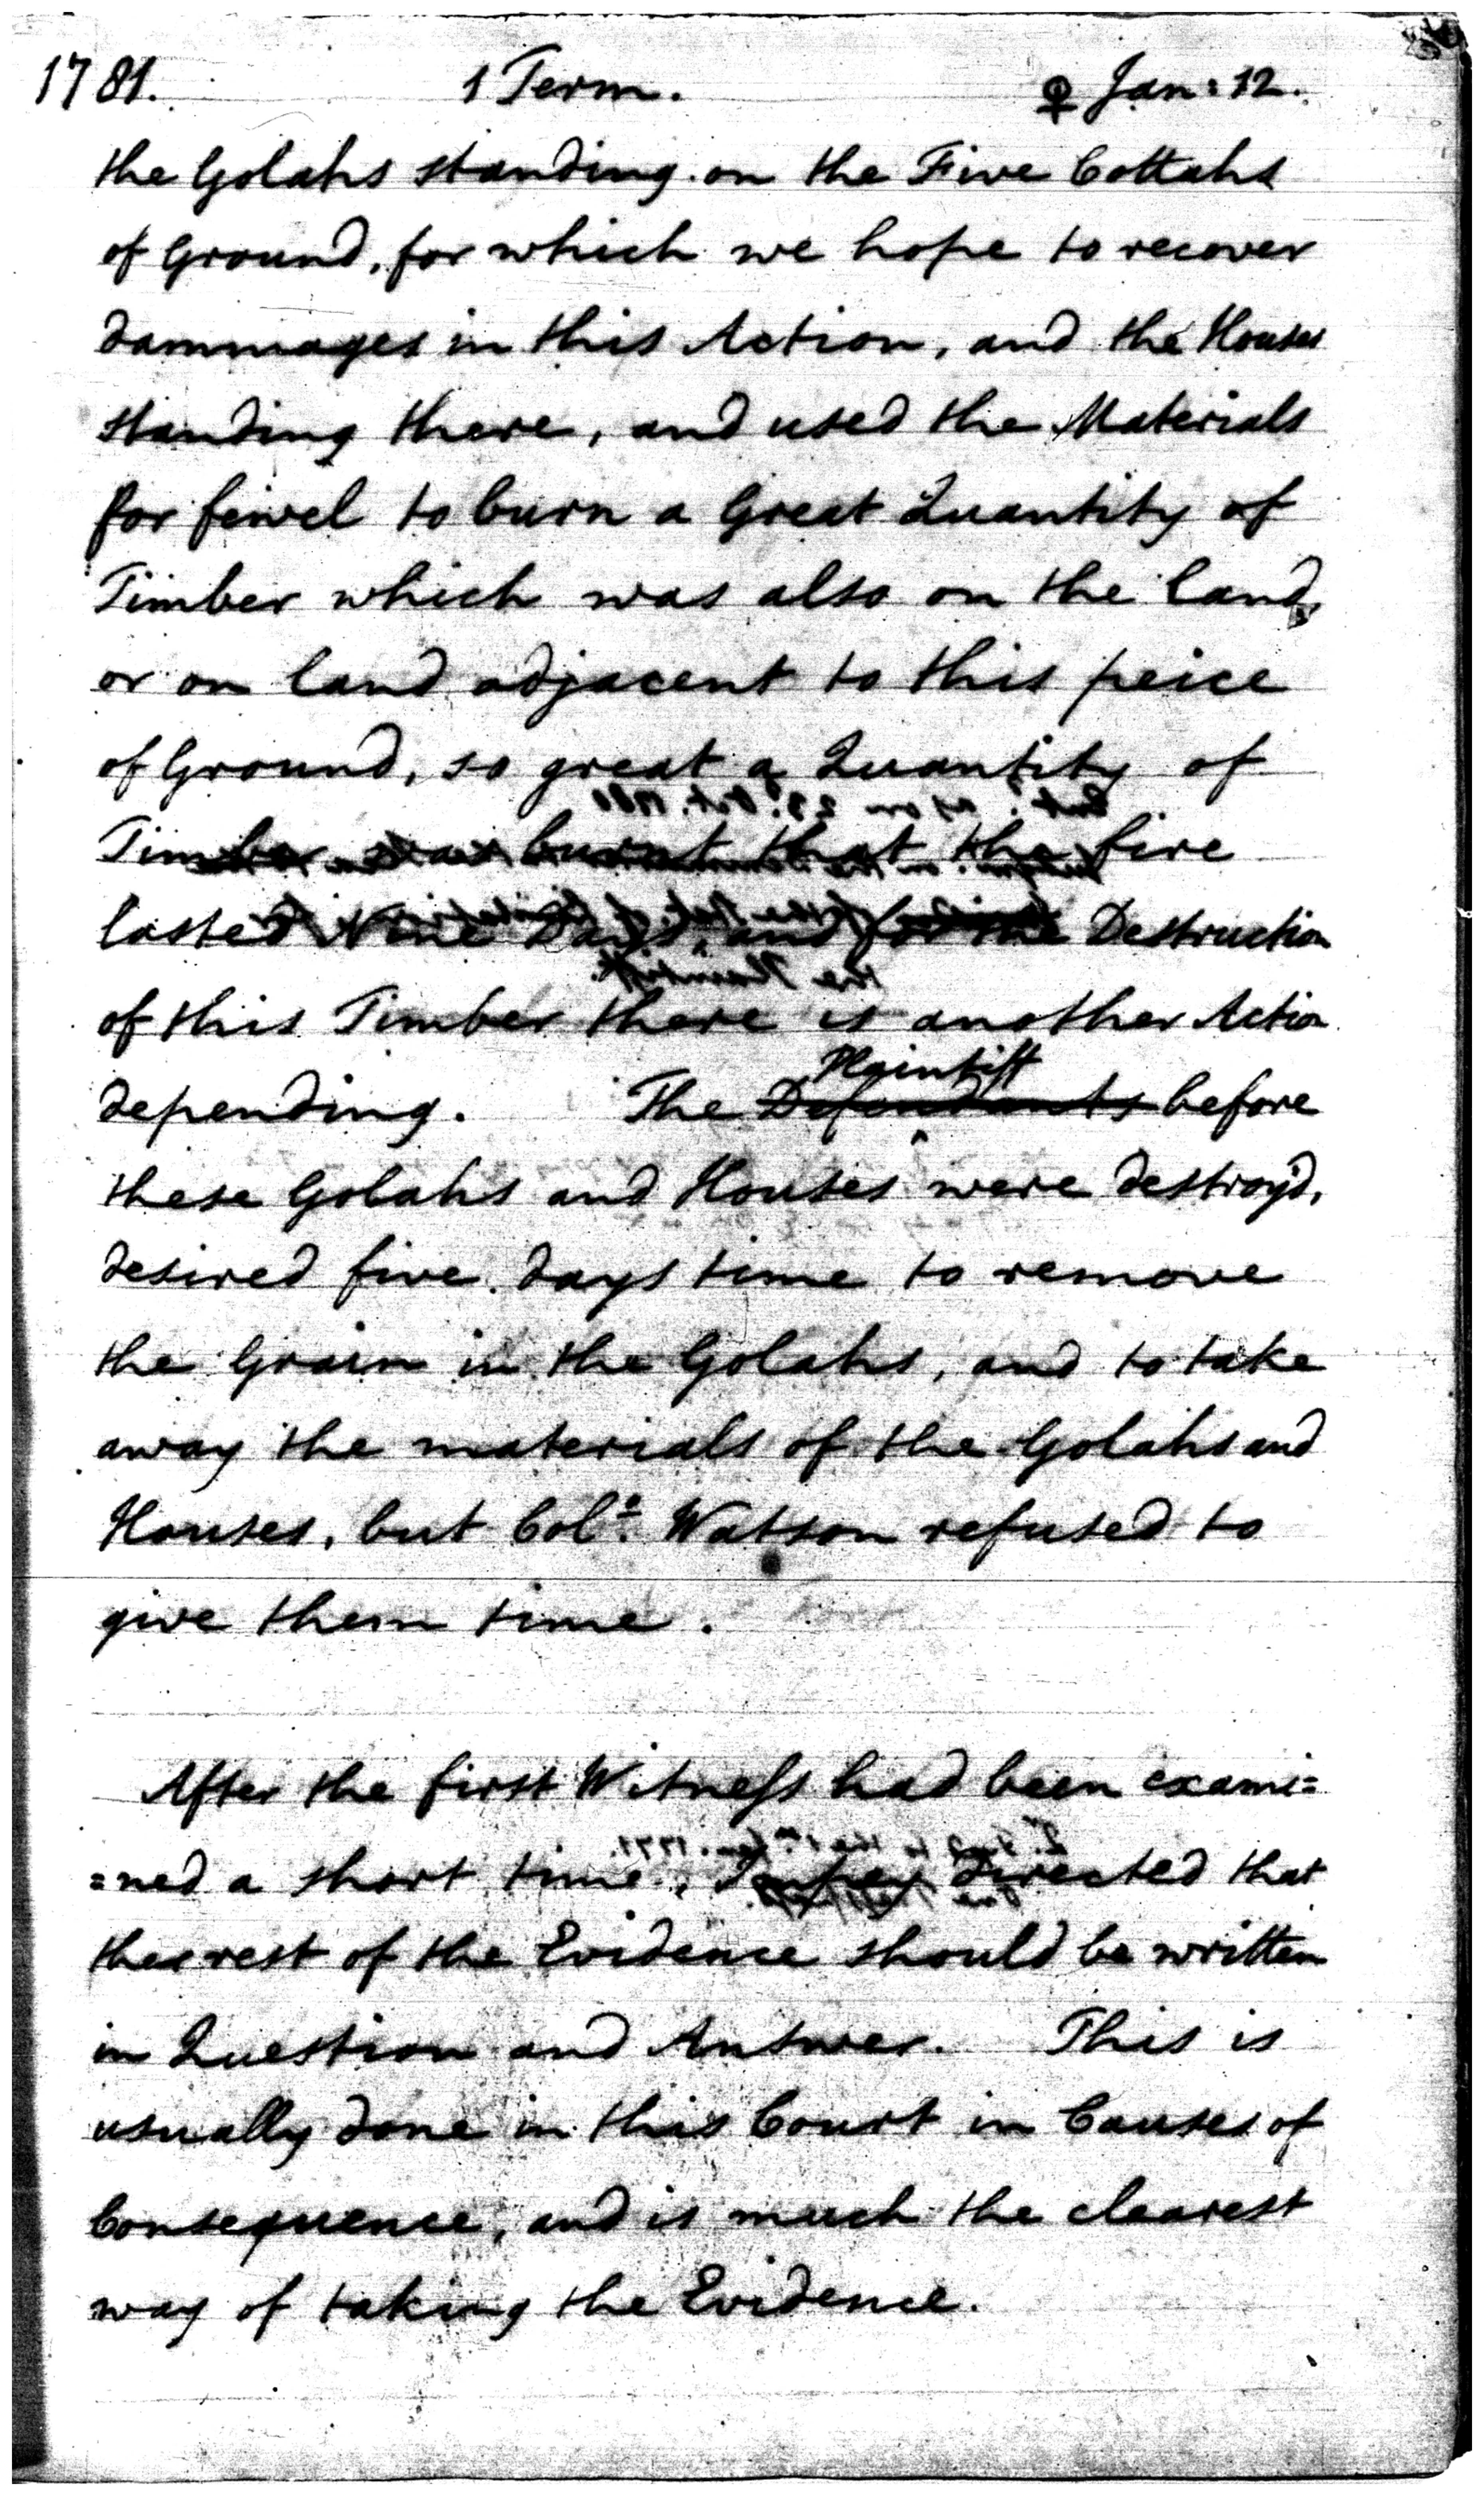 1781. 1 Term. ♀ Jan: 12.
the Golahs standing on the Five Cottahs
of Ground, for which we hope to recover
dammages in this Action, and the Houses
standing there, and used the Materials
for fewel to burn a Great Quantity of
Timber which was also on the land,
or on land adjacent to this peice
of Ground, so great a Quantity of
Timber was burnt that the fire
lasted Nine Days, and for the Destruction
of this Timber there is another Action
Plaintiff
depending. The Defendants before
these Golahs and Houses were destroy'd,
desired five days time to remove
the Grain in the Golahs, and to take
away the materials of the Golahs and
Houses, but Col.º Watson refused to
give them time.
After the first Witness had been exami=
=ned a short time, Impey directed that
the rest of the Evidence should be written
in Question and Answer. This is
usually done in this Court in Causes of
Consequence, and is much the clearest
way of taking the Evidence.